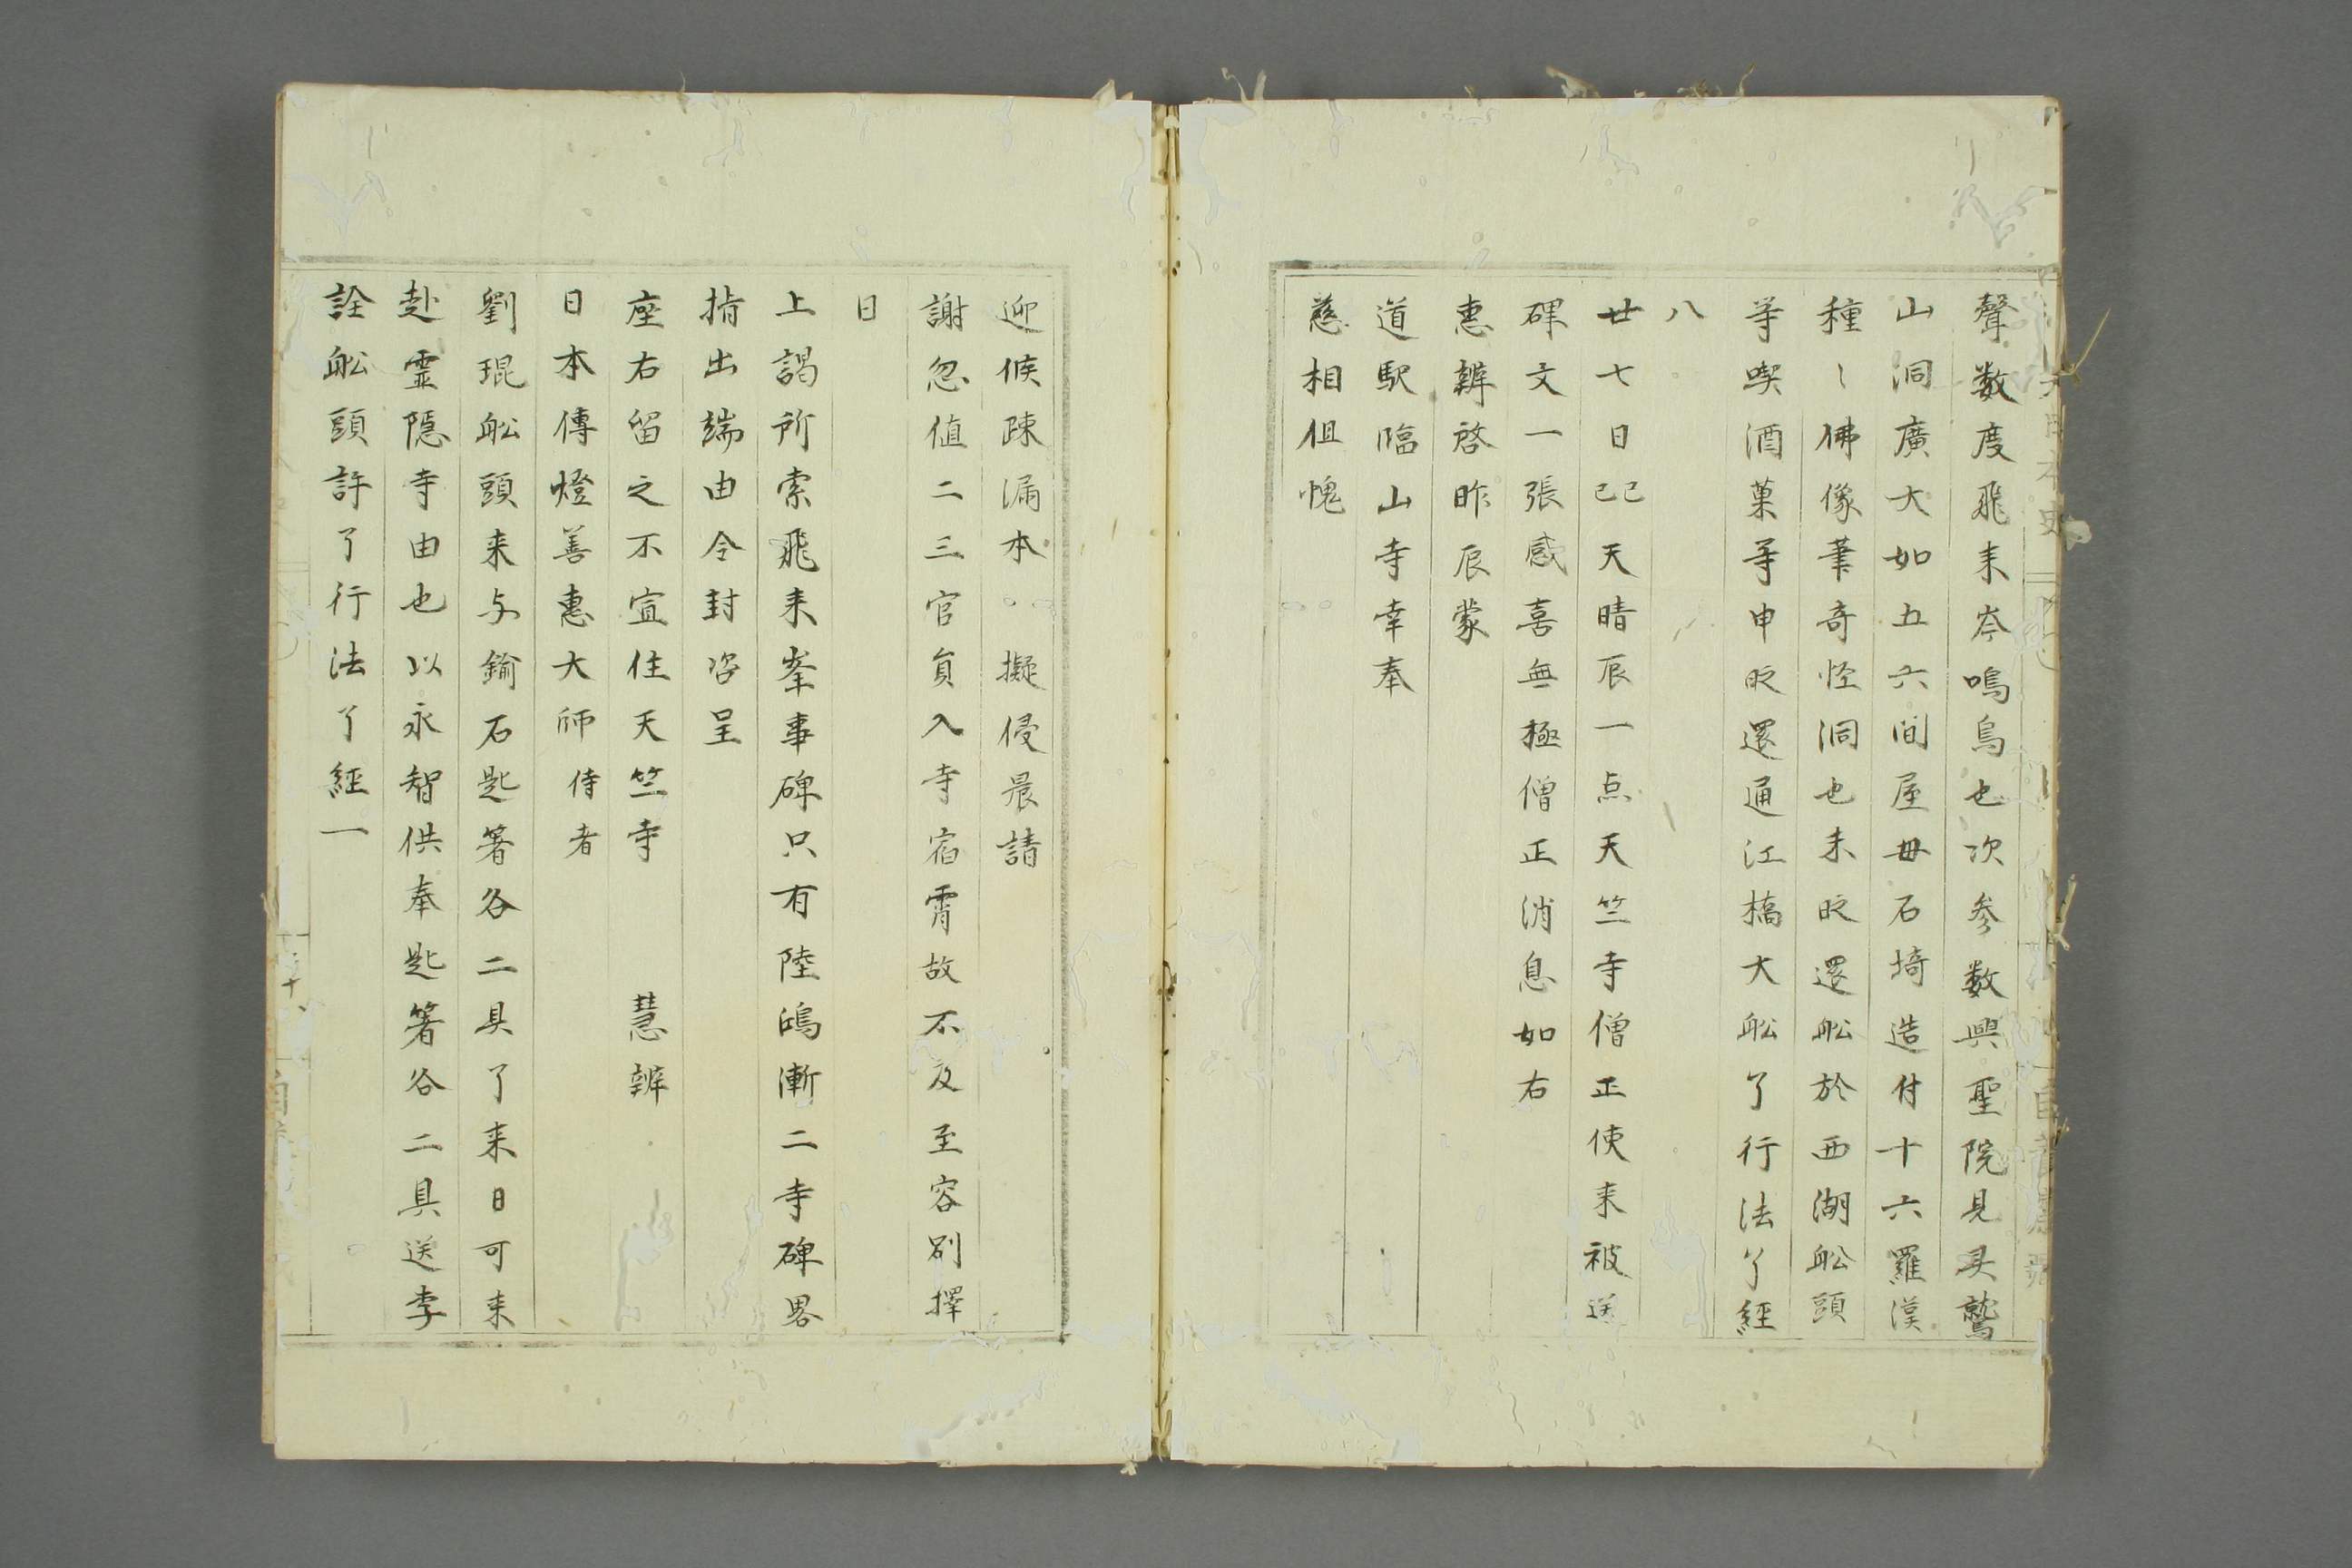 聲数度飛来岑鳴鳥也次参数興聖院見㚑鷲
山洞廣大如五六间屋毋石埼造付十六羅漢
種〻佛像茟奇怪洞也未时還舩於西湖舩頭
等喫酒菓等申时還通江橋大舩了行法了經
八
廿七日己巳天晴辰一点天竺寺僧正使来被送
碑文一張感喜無極僧正消息如右
惠辨啓昨辰蒙
道馭臨山寺幸奉
慈相但愧
迎候踈漏本擬侵晨請
謝忽值二三官負入寺宿霄故不及至容別擇
日
上謁所索飛来峯事碑只有陸鴻漸二寺碑畧
揹出端由令封咨呈
座右留之不宣住天竺寺 慧辨
日本傳燈善惠大師 侍者
劉琨舩頭来与鍮石匙箸各二具了来日可来
赴霊隠寺由也以永智供奉匙箸各二具送李
詮舩頭許了行法了經一